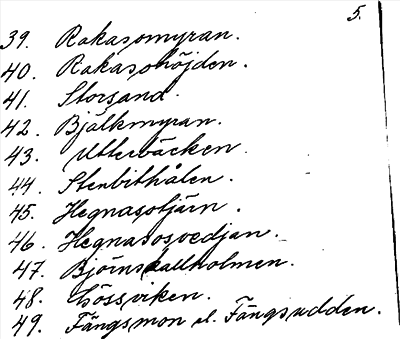 5.
39. Rakasomyran.
40. Rakasohöjden.
41. Storsand.
42. Bjälkmyran.
43. Utterbäcken.
44. Stenbithålen.
45. Hegnasotjärn.
46. Hegnasosvedjan.
47. Björnskallholmen.
48. Gössviken.
49. Fängsmon el. Fängsudden.